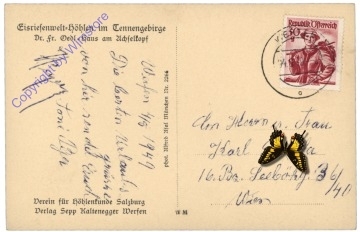 Eisriesenwelt-Höhlen im Tennengebirge
Dr. Fr. Oedl-Haus am Achselkopf
Copyright by www.
Werfen 4/9 1949
Die besten Urlaubs
grüße
von hier sendet Euch
Toni
Verein für Höhlenkunde Salzburg
Verlag Sepp Kaltenegger Werfen
phot. Alfred Asal München Nr. 2264
WERFEN
Republik Österreich
An Herrn u. Frau
Karl
16. Bz. Seeböckg 36/
40
Wien